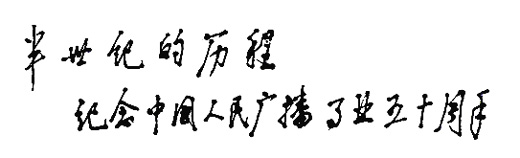 半世纪的历程
纪念中国人民广播事业五十周年